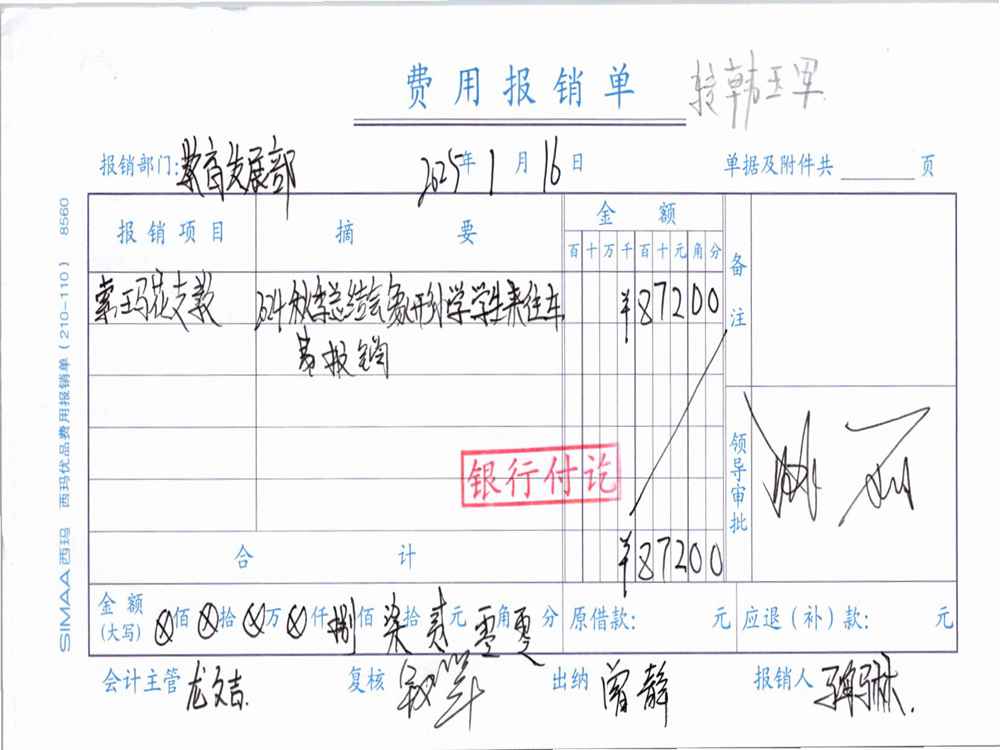 费用报销单
转韩玉军
报销部门:教育发展部 2025年1月16日 单据及附件共 页
报销项目 摘要 金额 备注
百十万千百十元角分
索玛花支教 2024秋季总结会 学生来往车 ¥87200
费报销
银行付讫
领导审批
合计 ¥87200
金额(大写) ⊗佰⊗拾⊗万⊗仟捌佰柒拾贰元零角零分 原借款: 元 应退(补)款: 元
会计主管 龙文吉 复核 出纳 曾静 报销人
SIMAA西玛 西玛优品费用报销单(210-110) 8560